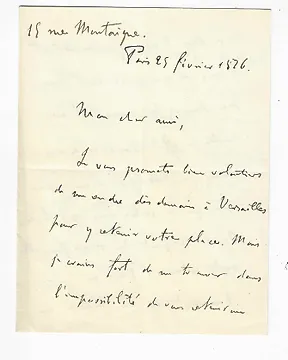 15 rue Montaigne.
Paris 25 février 1876.
Mon cher ami,
Je vous promets bien volontiers
de me rendre dès demain à Versailles
pour y retenir votre place. Mais
je crains fort de me trouver dans
l'impossibilité de vous retenir une